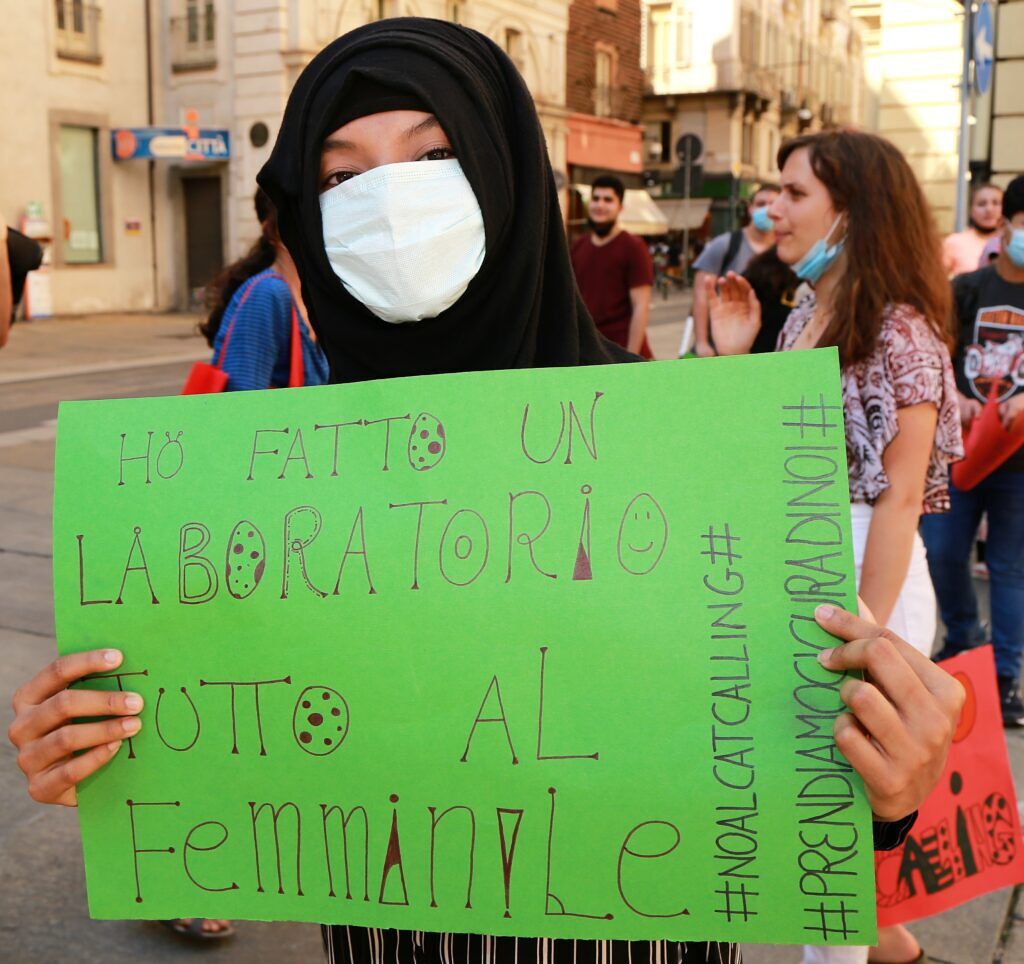 HÖ FATTO UN
LABORATORIO
TUTTO AL
FemminiLe
#NOALCATCALLING#
#PRENDIAMOCICURADINOI#
CITTÀ
CALLING